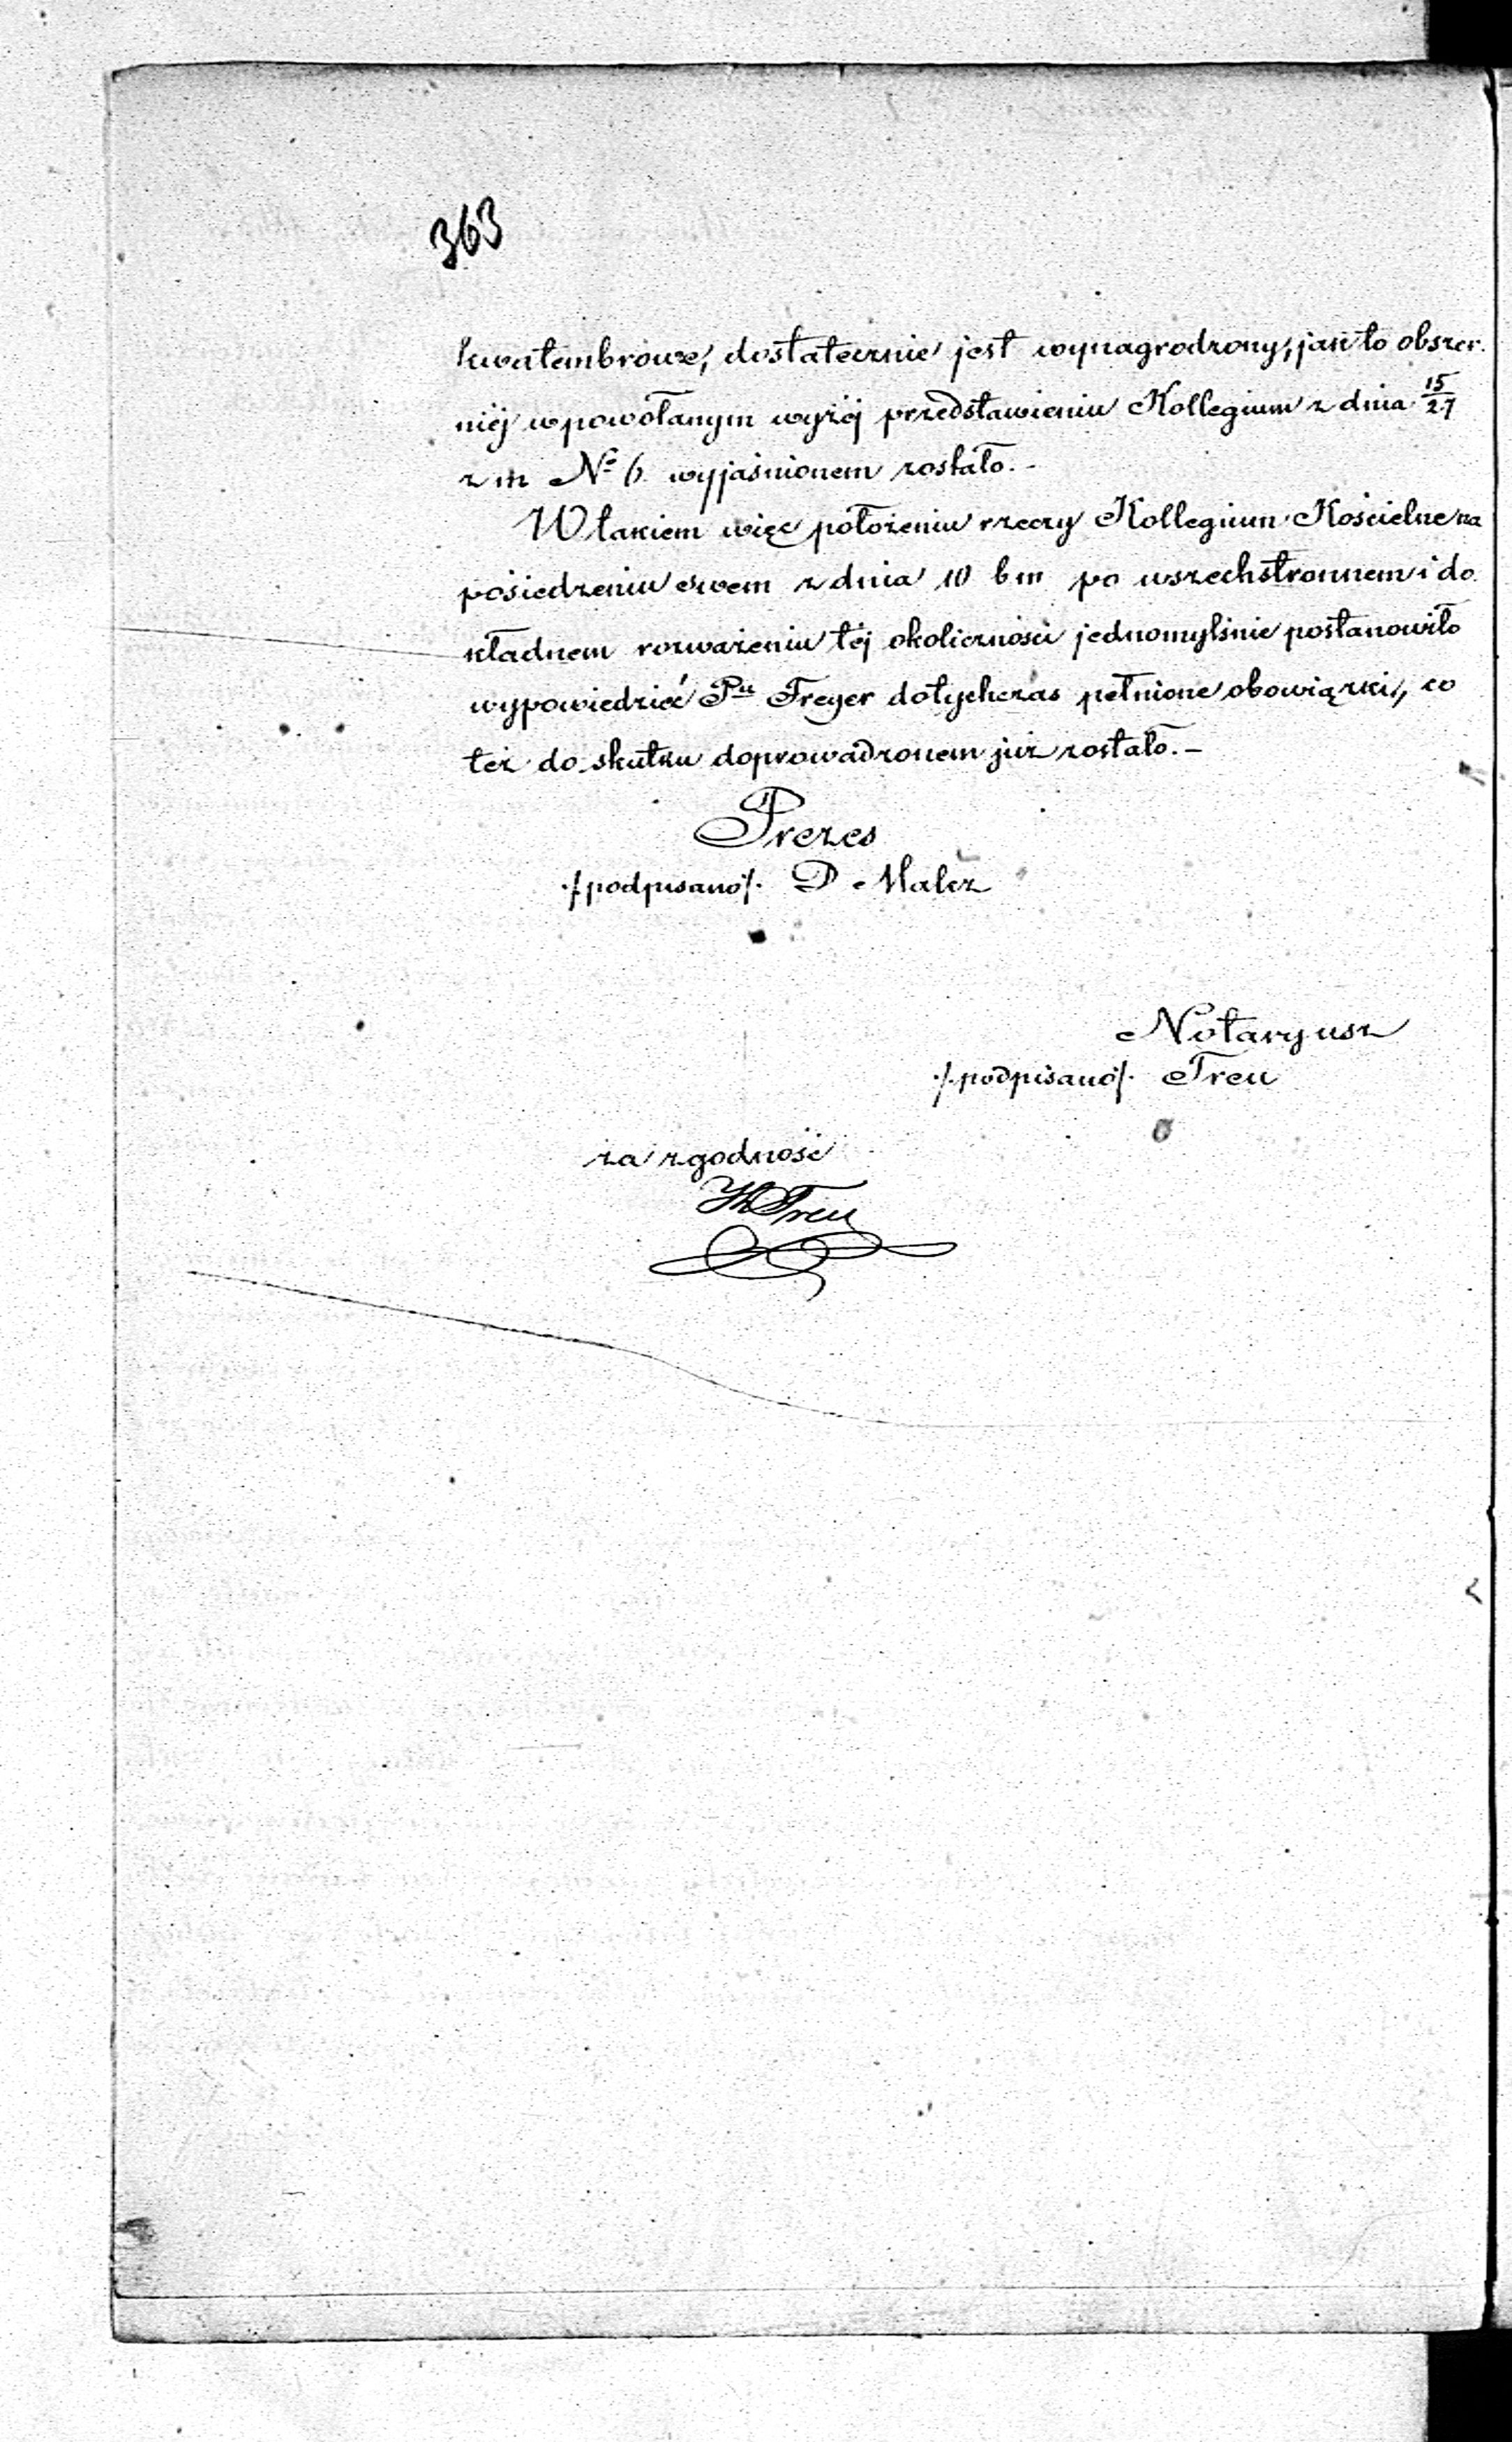 363
kwatembrowe, dostatecznie jest wynagrodzony, jak to obszer-
niéj w powołanym wyżéj przedstawieniu Kollegium z dnia 15/27
z m № 6 wyjaśnionem zostało. -
W takiem więc położeniu rzeczy Kollegium Kościelne na
posiedzeniu swem z dnia 10 b m po wszechstronnem i do-
kładnem rozważeniu téj okoliczności jednomyślnie postanowiło
wypowiedzieć Pu Freyer dotychczas pełnione obowiązki, co
też do skutku doprowadzonem już zostało. -
Prezes
./podpisano/. D Malcz
Notaryusz
./podpisano/. Treu
za zgodność
Treu